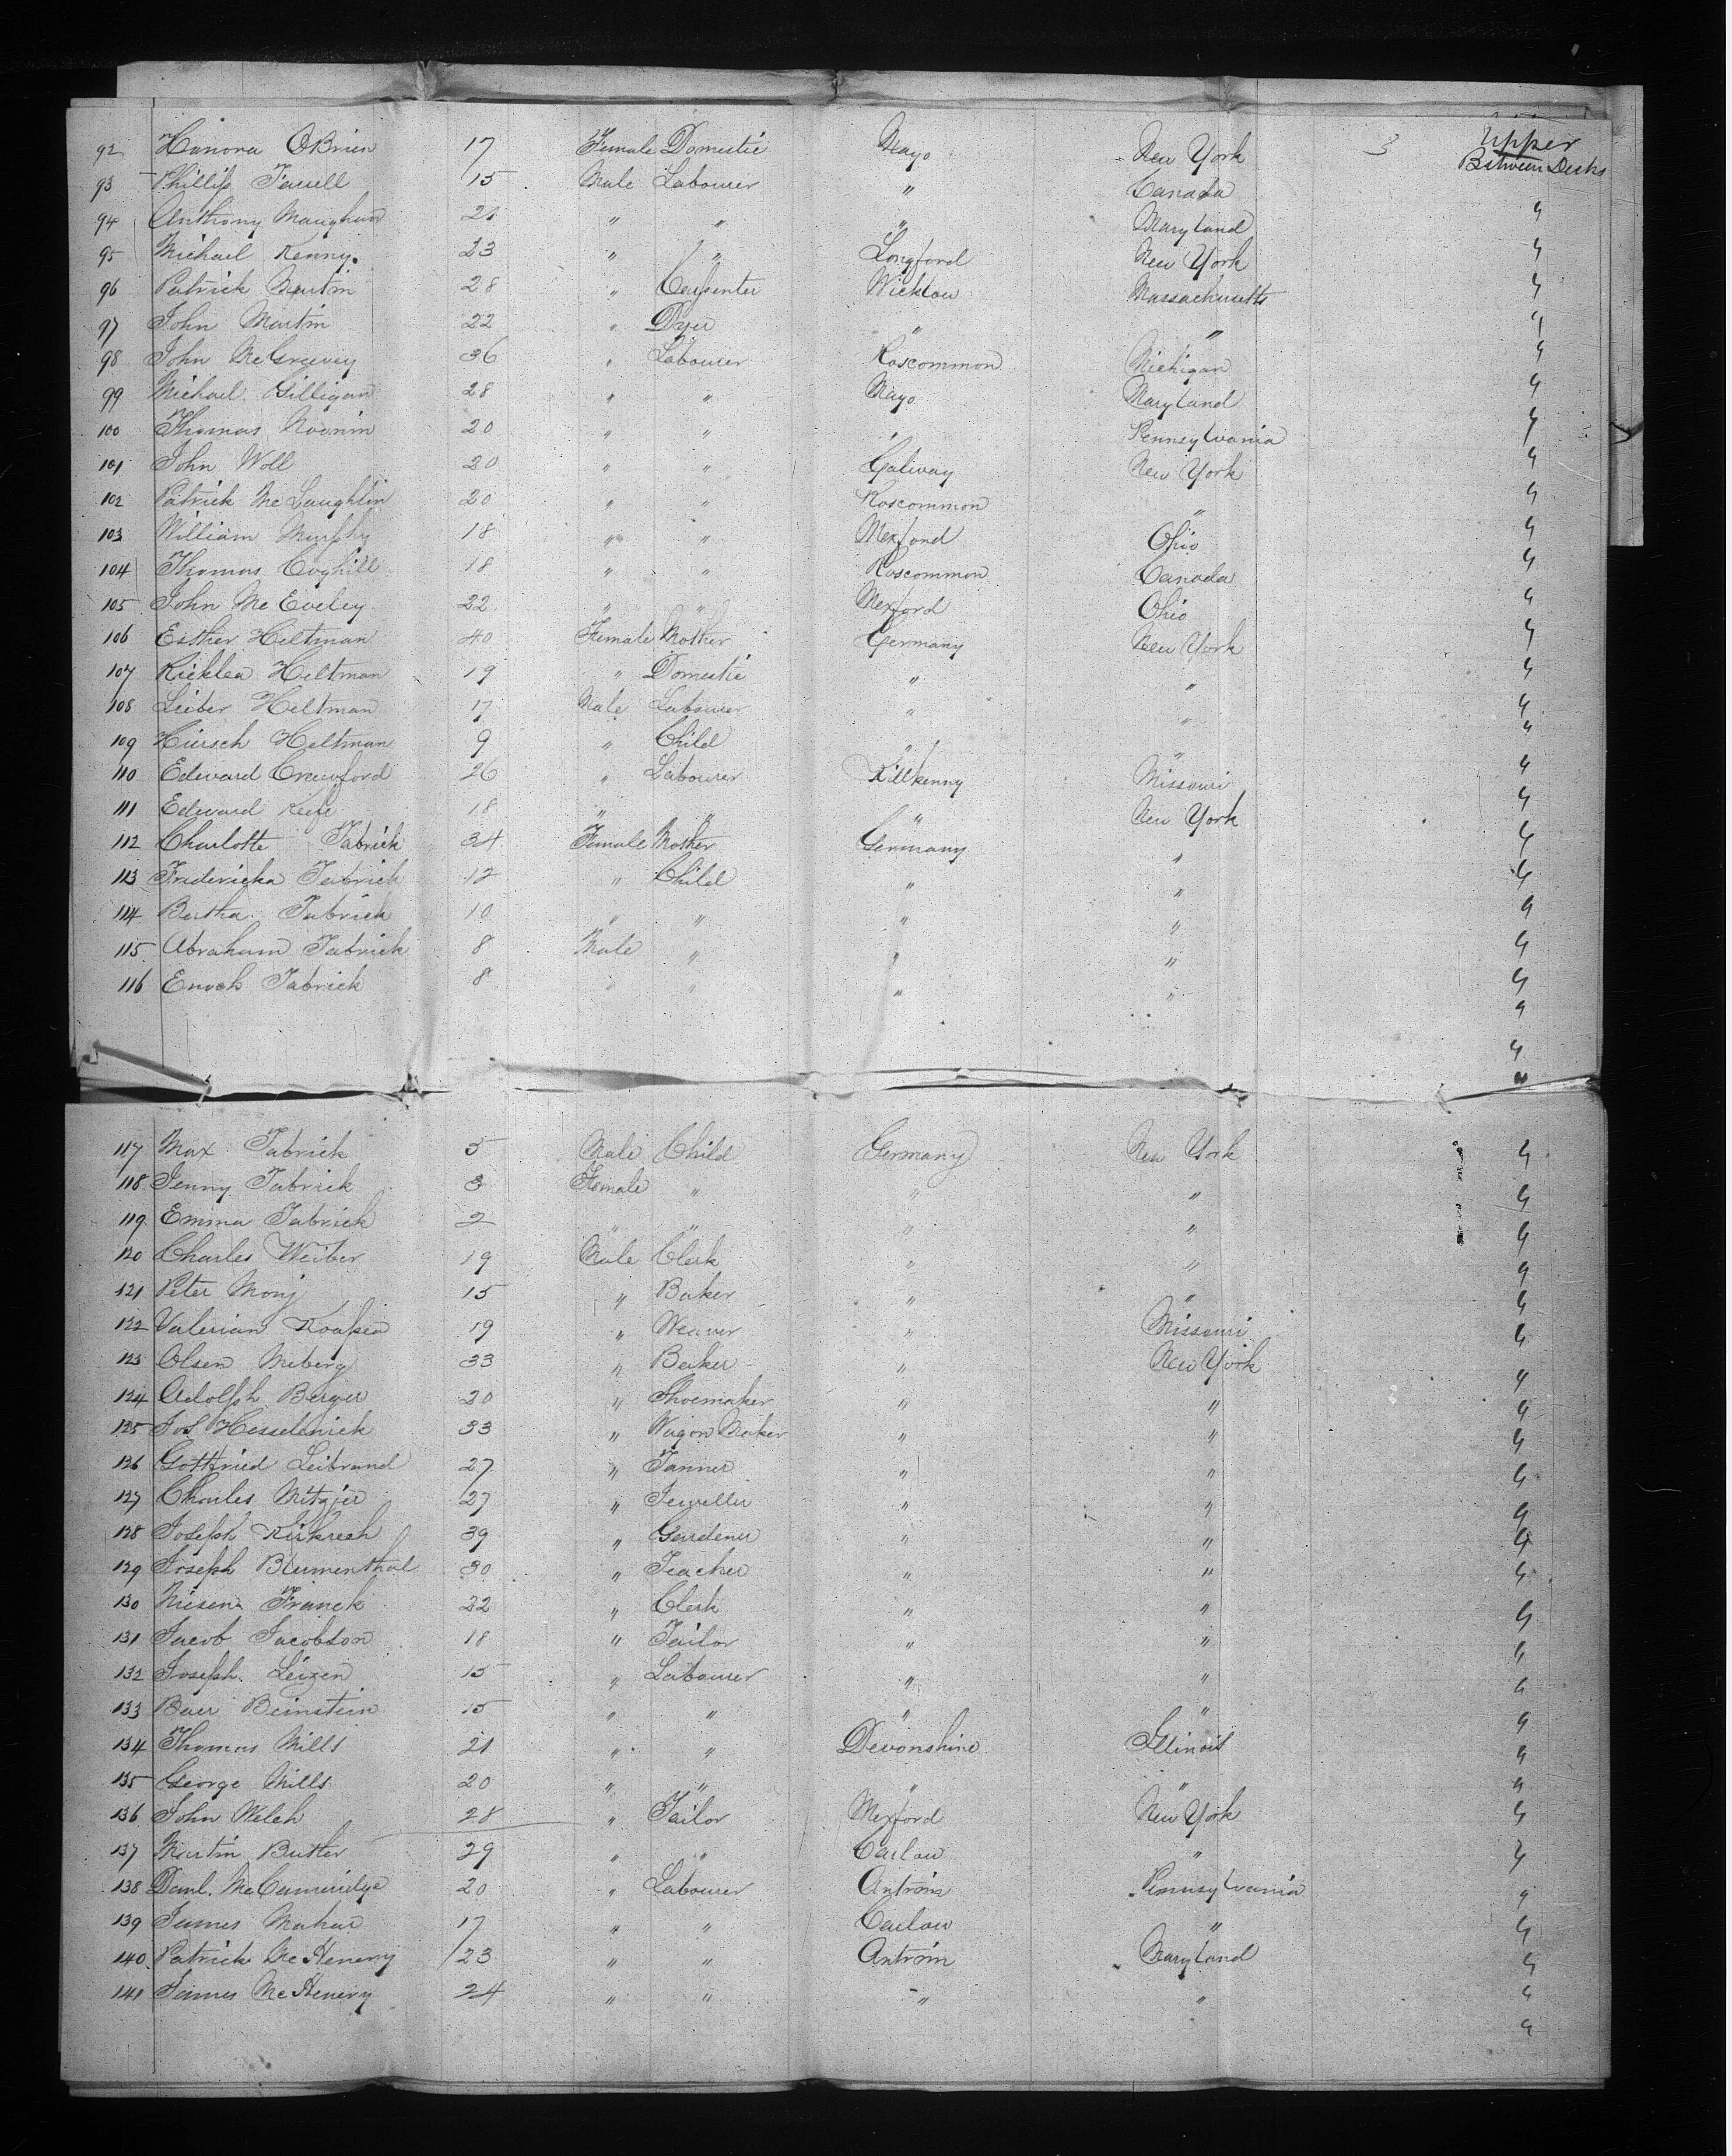 92 Hanora OBrien 17 Female Domestic Mayo New York 3 Upper
93 Phillip Farrell 15 Male Labourer " Canada Between Decks
94 Anthony Maughan 21 " " " Maryland "
95 Michael Kenny. 23 " " Longford New York "
96 Patrick Martin 28 " Carpenter Wicklow Massachusetts "
97 John Martin 22 " Dyer " " "
98 John McGreevey 36 " Labourer Roscommon Michigan "
99 Michael Gilligan 28 " " Mayo Maryland "
100 Thomas Noonin 20 " " " Pennsylvania "
101 John Woll 20 " " Galway New York "
102 Patrick McLaughlin 20 " " Roscommon " "
103 William Murphy 18 " " Wexford Ohio "
104 Thomas Coghill 18 " " Roscommon Canada "
105 John McEveley 22 " " Wexford Ohio "
106 Esther Heltman 40 Female Mother Germany New York "
107 Ricklea Heltman 19 " Domestic " " "
108 Lieber Heltman 17 Male Labourer " " "
109 Hirsch Heltman 9 " Child " " "
110 Edward Crawford 26 " Labourer Killkenny Missouri "
111 Edward Keefe 18 " " " New York "
112 Charlotte Fabrick 34 Female Mother Germany " "
113 Fredericka Fabrick 12 " Child " " "
114 Bertha Fabrick 10 " " " " "
115 Abraham Fabrick 8 Male " " " "
116 Enoch Fabrick 8 " " " " "
117 Max Fabrick 5 Male Child Germany New York "
118 Jenny Fabrick 3 Female " " " "
119 Emma Fabrick 2 " " " " "
120 Charles Weiber 19 Male Clerk " " "
121 Peter Monj 15 " Baker " " "
122 Valerian 19 " Weaver " Missouri "
123 Olsen Meberg 33 " Baker " New York "
124 Adolph Berger 20 " Shoemaker " " "
125 Jos Hesselenick 33 " Wagon Maker " " "
126 Gottfried Leibrand 27 " Tanner " " "
127 Charles 27 " Jeweller " " "
128 Joseph 39 " Gardener " " "
129 Joseph Blumenthal 30 " Teacher " " "
130 Franck 22 " Clerk " " "
131 Jacob Jacobson 18 " Tailor " " "
132 Joseph Leizen 15 " Labourer " " "
133 Baer Beinstein 15 " " " " "
134 Thomas Mills 21 " " Devonshire Illinois "
135 George Mills 20 " " " " "
136 John Welch 28 " Tailor Wexford New York "
137 Martin Butler 29 " " Carlow " "
138 Danl. McCammridge 20 " Labourer Antrim Pennsylvania "
139 James Mahar 17 " " Carlow " "
140 Patrick McHenery 23 " " Antrim Maryland "
141 James McHenery 24 " " " " "